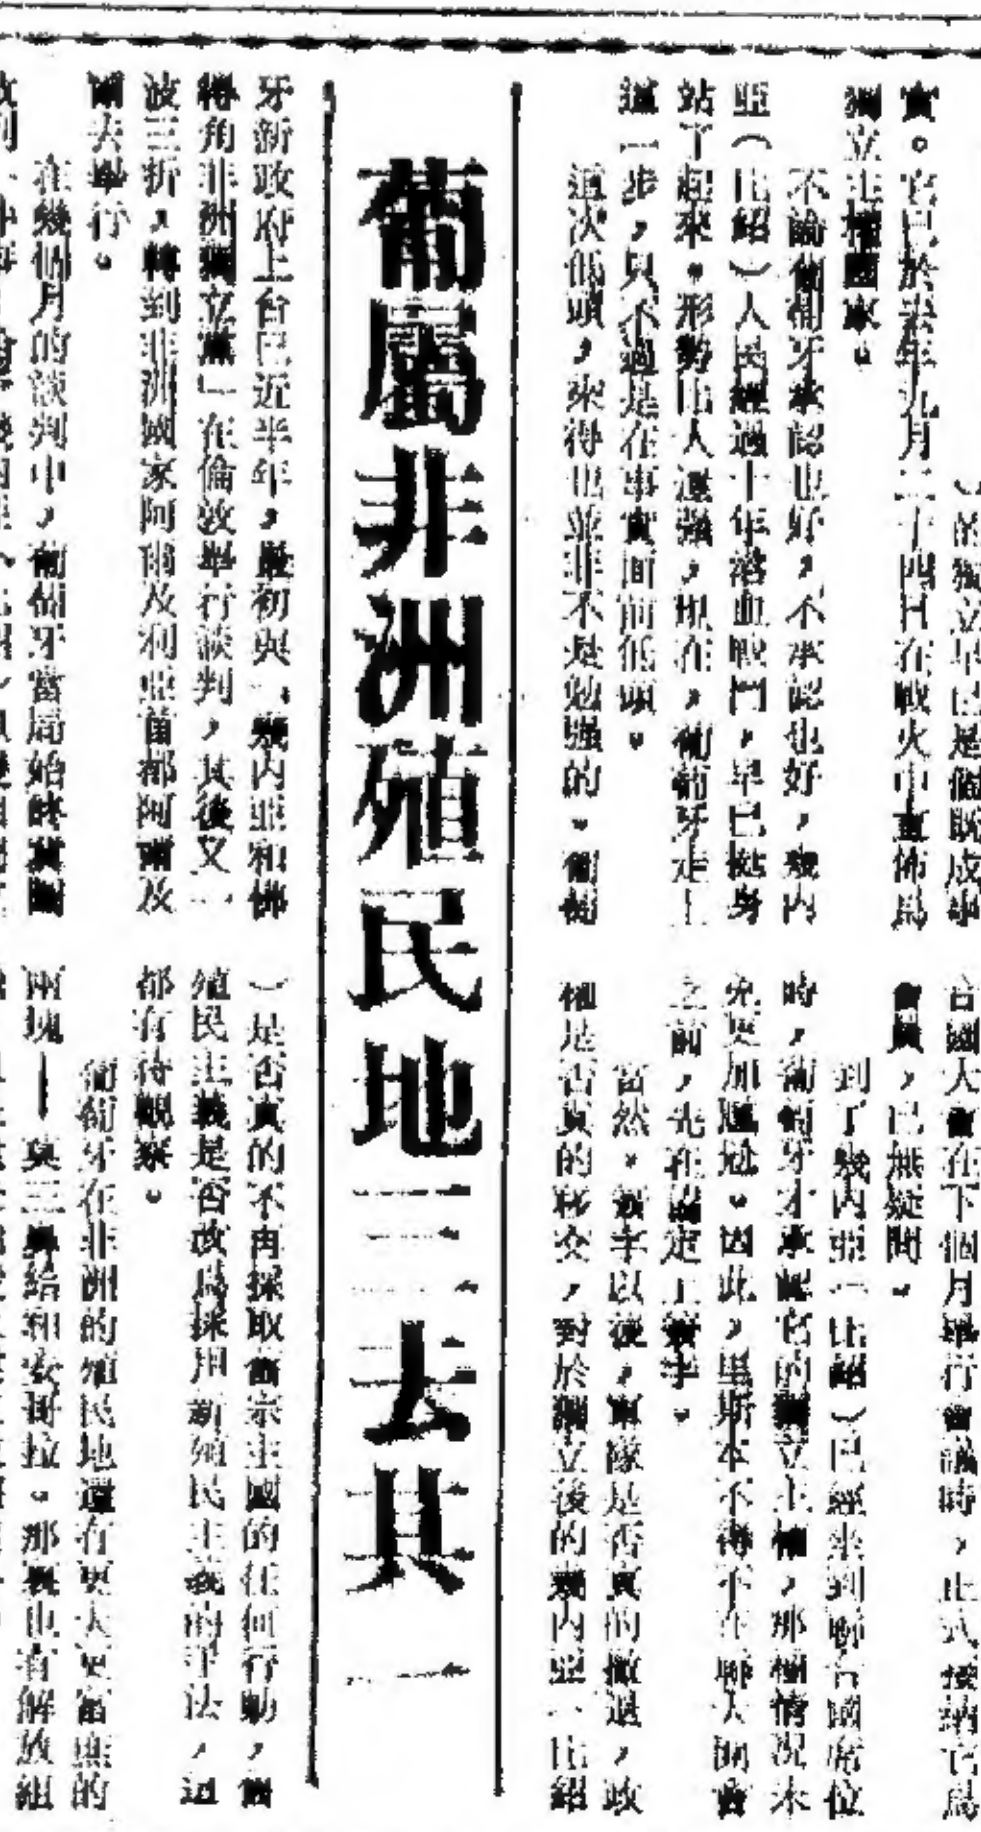 葡屬非洲殖民地三去其一
）的獨立早已是個既成事
實。它已於去年九月二十四日在戰火中宣佈爲
獨立主權國家。
不論葡萄牙承認也好，不承認也好，幾内
亞（比紹）人民經過十年浴血戰鬥，早已挺身
站了起來。形勢比人還強，現在，葡萄牙走上
這一步，只不過是在事實面前低頭。
這次低頭，來得也並非不是勉強的。葡萄
牙新政府上台已近半年，最初與「幾内亞和佛
得角非洲獨立黨」在倫敦舉行談判，其後又一
波三折，轉到非洲國家阿爾及利亞首都阿爾及
爾去舉行。
在幾個月的談判中，葡萄牙當局始終
合國大會在下個月舉行會議時，正式接納它爲
會員，已無疑問。
到了幾内亞（比紹）已經坐到聯合國席位
時，葡萄牙才承認它的獨立主權，那種情況未
免更加尷尬。因此，里斯本不得不在聯大開會
之前，先在協定上簽字。
當然，簽字以後，軍隊是否真的撤退，政
權是否真的移交，對於獨立後的幾内亞（比紹
）是否真的不再採取舊宗主國的任何行動，舊
殖民主義是否改爲採用新殖民主義的手法，這
都有待觀察。
葡萄牙在非洲的殖民地還有更大更富庶的
兩塊——莫三鼻給和安哥拉。那裏也有解放組